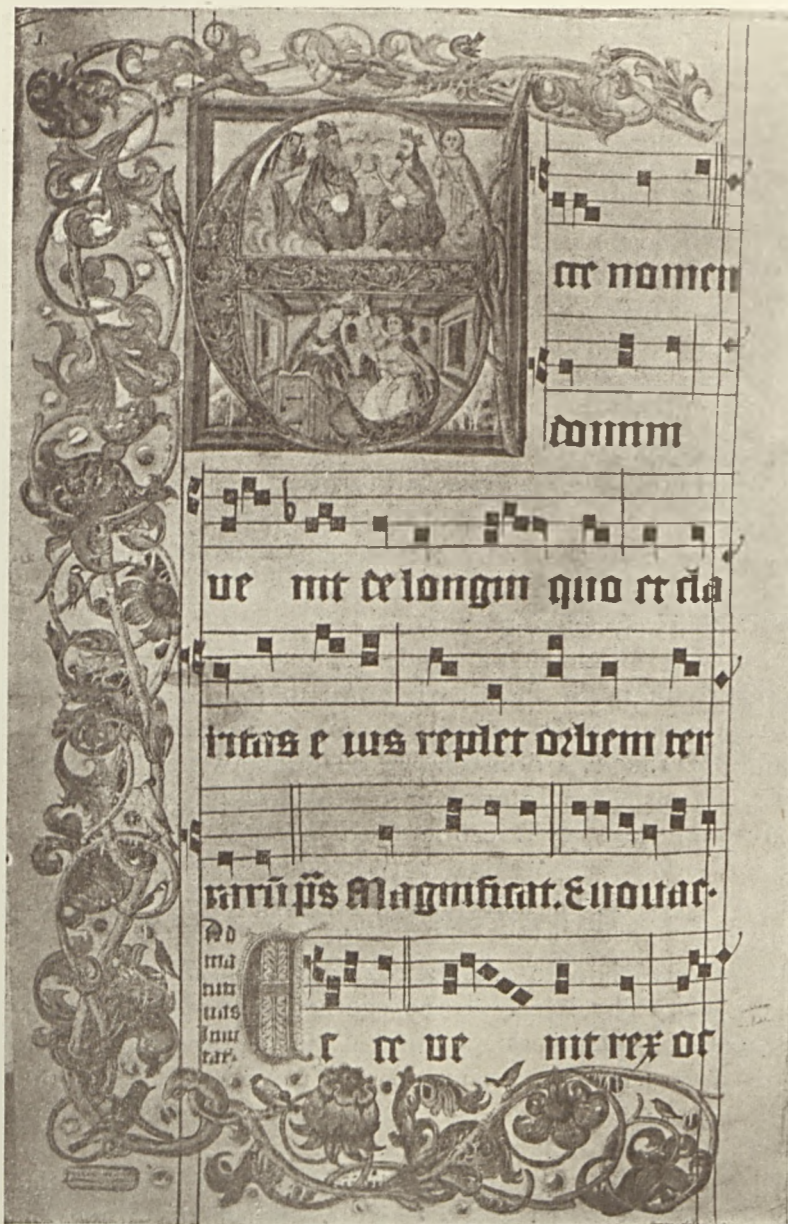 Ecce nomen
domini
ve nit de longin quo et cla
ritas e ius replet orbem ter
rarū p̄s Magnificat. Euouae.
Ad
ma
Ec ce ve nit rex oc